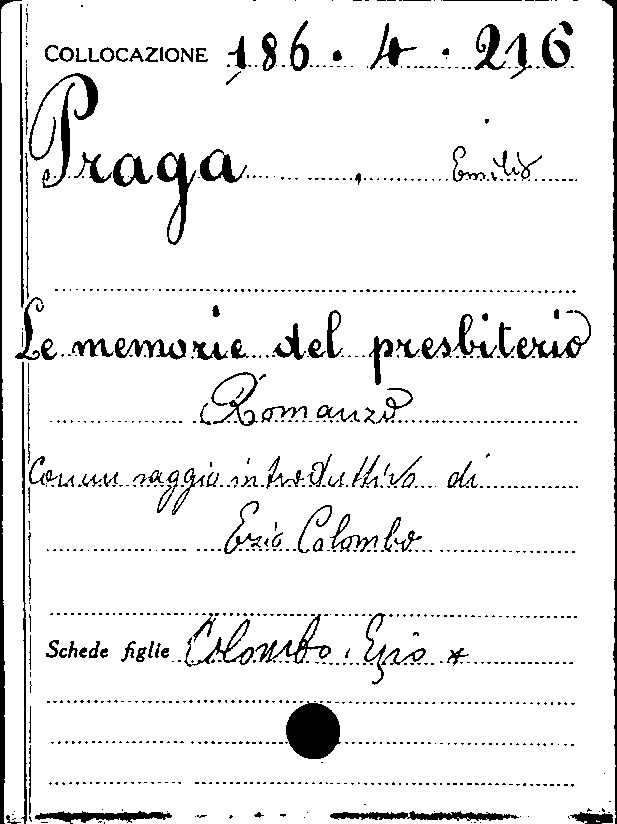 COLLOCAZIONE 186.4.216
Praga, Emilio
Le memorie del presbiterio
Romanzo
Con un saggio introduttivo di
Ezio Colombo
Schede figlie Colombo, Ezio *